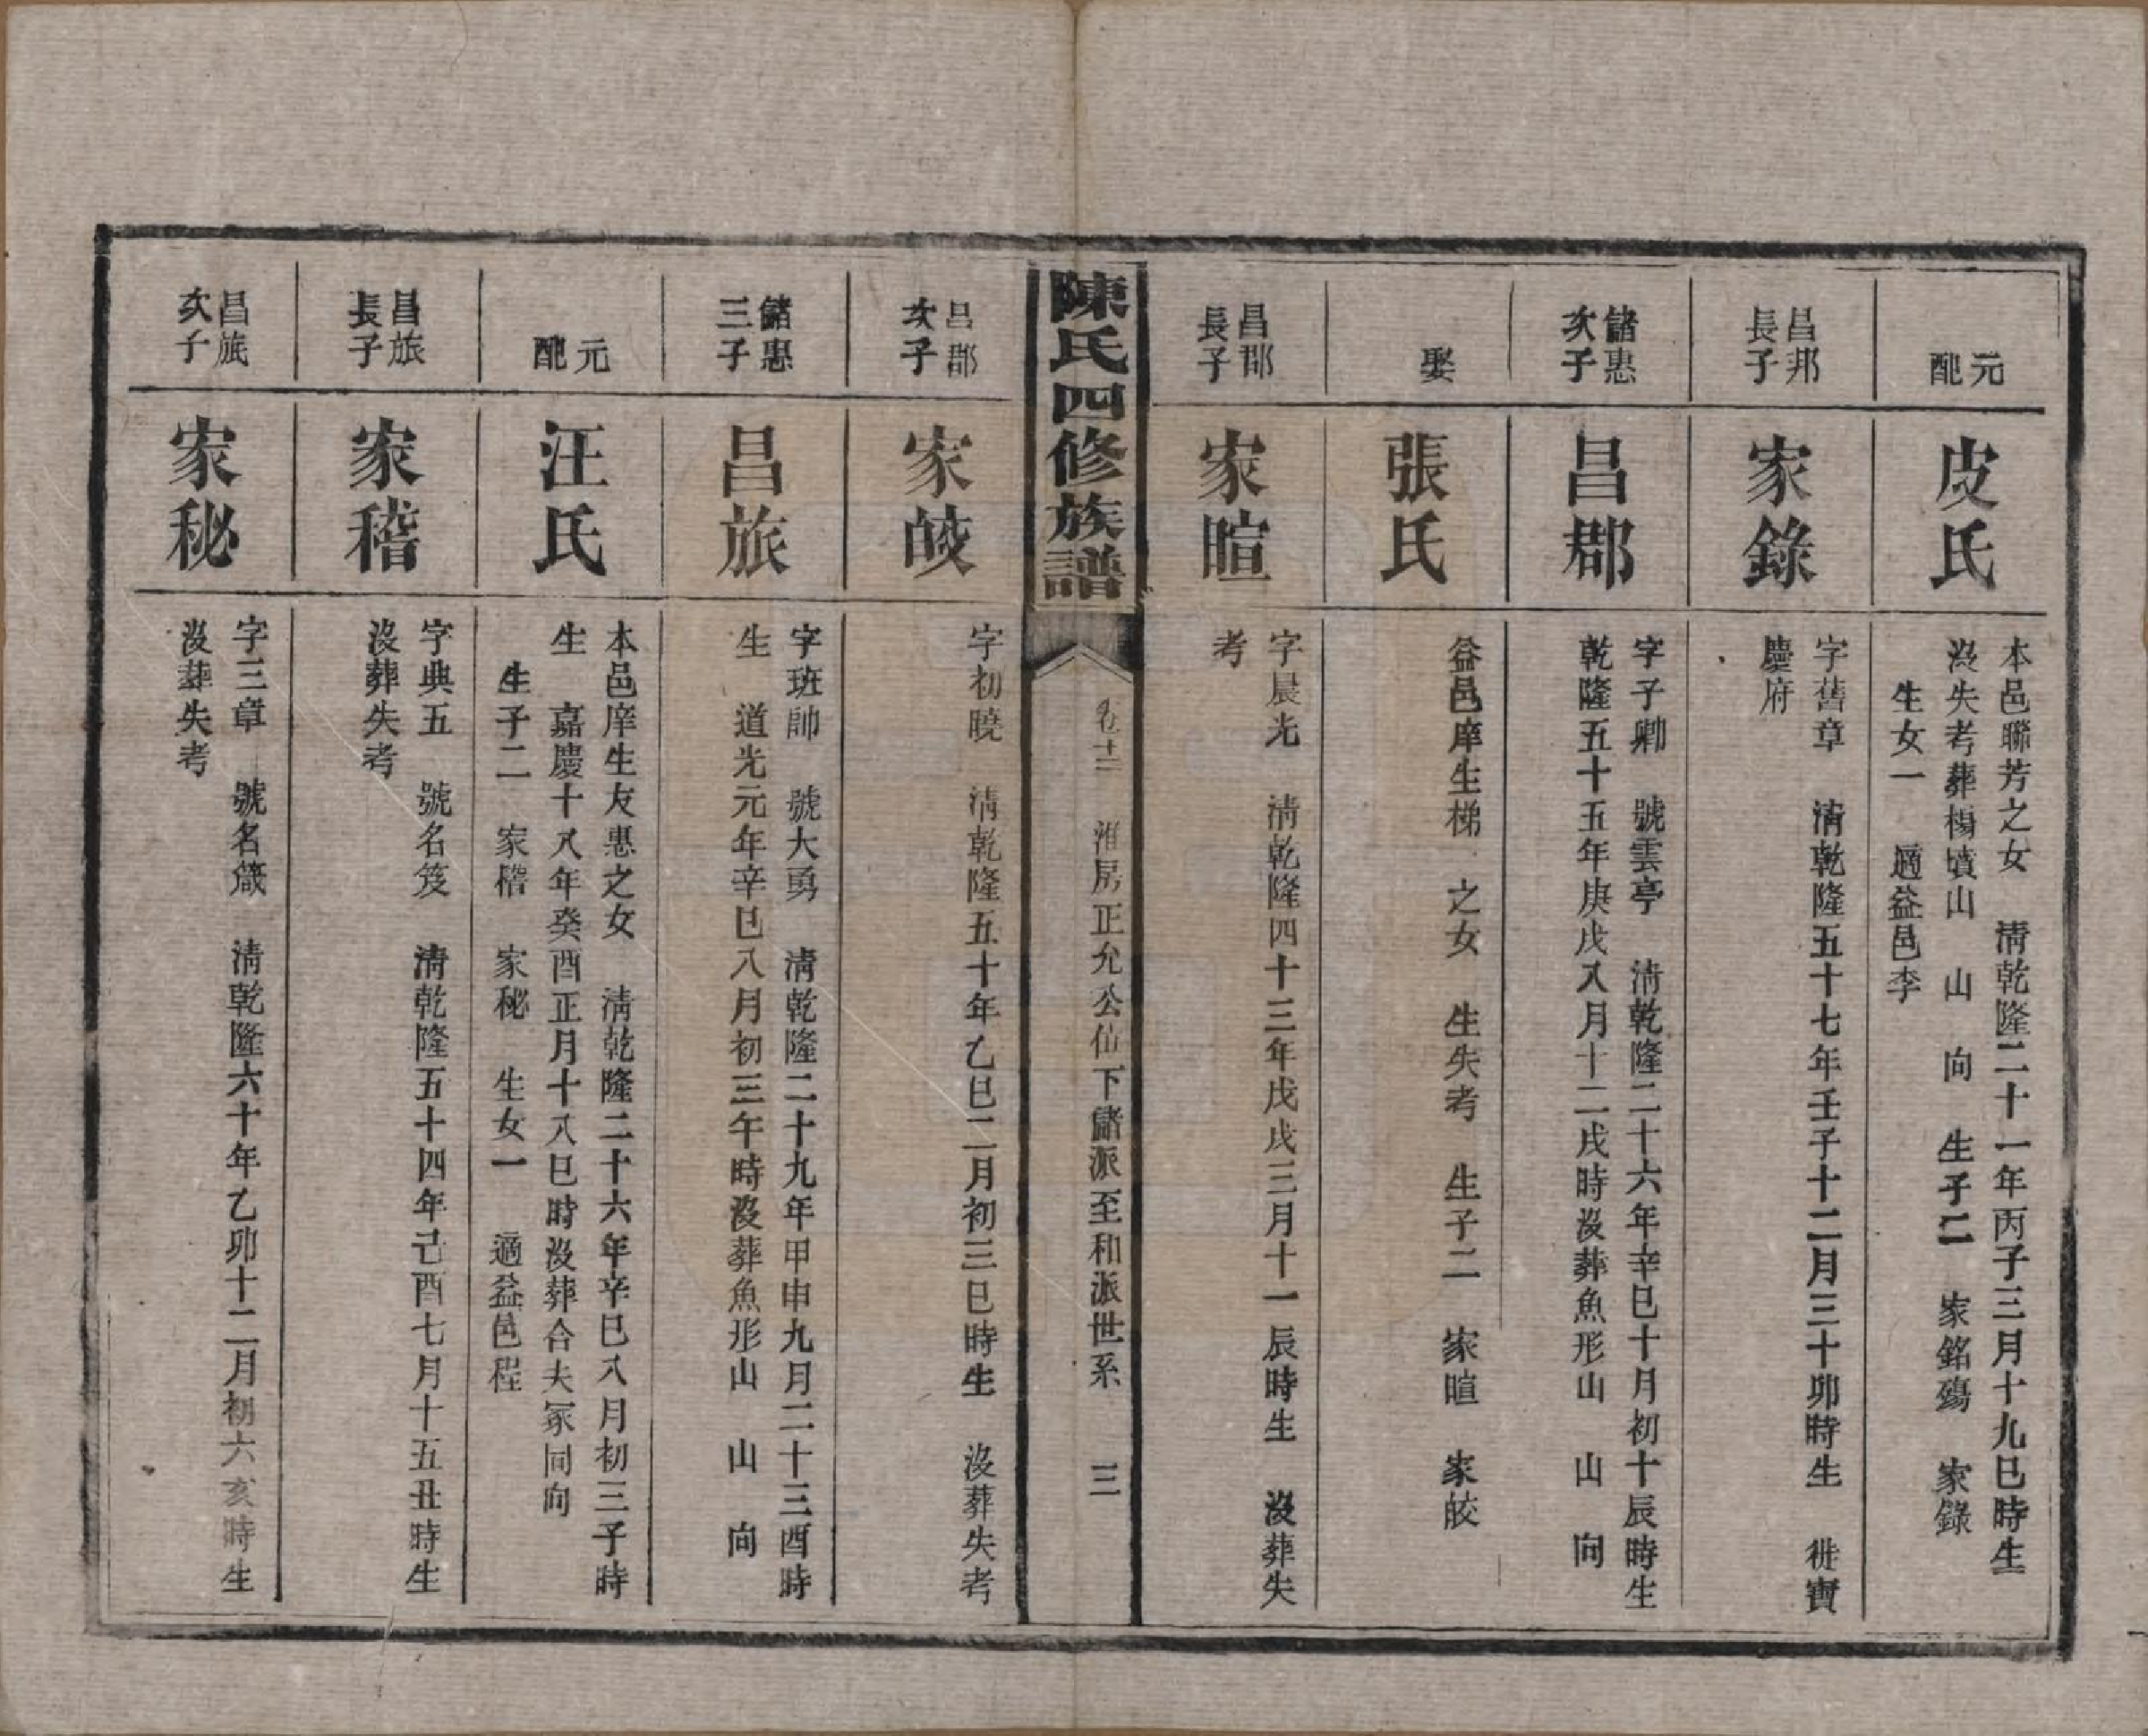 元配
皮氏
本邑聯芳之女　清乾隆二十一年丙子三月十九巳時生
沒失考葬楊墳山　山　向　生子二　家銘殤　家錄
生女一　適益邑李
昌邦
長子
家錄
字舊章　清乾隆五十七年壬子十二月三十卯時生　徙寶
慶府
儲惠
次子
昌郡
字子卿　號雲亭　清乾隆二十六年辛巳十月初十辰時生
乾隆五十五年庚戌八月十二戌時沒葬魚形山　山　向
娶
張氏
益邑庠生梯　之女　生失考　生子二　家暄　家皎
昌郡
長子
家暄
字晨光　清乾隆四十三年戊戌三月十一辰時生　沒葬失
考
陳氏四修族譜
卷十二　淮房正允公位下儲派至和派世系　三
昌郡
次子
家皎
字初曉　清乾隆五十年乙巳二月初三巳時生　沒葬失考
儲惠
三子
昌旅
字班帥　號大勇　清乾隆二十九年甲申九月二十三酉時
生　道光元年辛巳八月初三午時沒葬魚形山　山　向
元配
汪氏
本邑庠生友惠之女　清乾隆二十六年辛巳八月初三子時
生　嘉慶十八年癸酉正月十八巳時沒葬合夫冢同向
生子二　家稽　家秘　生女一　適益邑程
昌旅
長子
家稽
字典五　號名笈　清乾隆五十四年己酉七月十五丑時生
沒葬失考
昌旅
次子
家秘
字三章　號名箴　清乾隆六十年乙卯十二月初六亥時生
沒葬失考